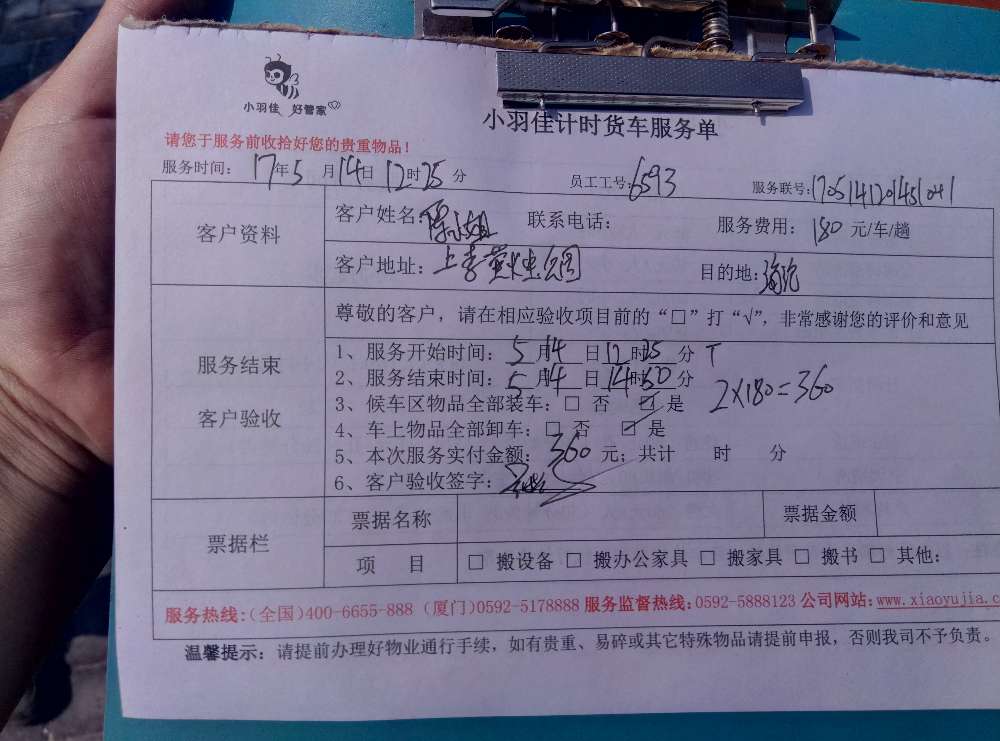 小羽佳 好管家
小羽佳计时货车服务单
请您于服务前收拾好您的贵重物品！
服务时间： 17年5月14日12时25分 员工工号：6593 服务联号：
客户资料
客户姓名： 联系电话： 服务费用：180元/车/趟
客户地址：上李萤火虫公园 目的地：海沧
尊敬的客户，请在相应验收项目前的“□”打“√”，非常感谢您的评价和意见
服务结束
客户验收
1、服务开始时间：5月14日12时35分
2、服务结束时间：5月14日14时50分
2×180=360
3、候车区物品全部装车：□ 否 ☑ 是
4、车上物品全部卸车：□ 否 ☑ 是
5、本次服务实付金额：360元；共计 时 分
6、客户验收签字：
票据栏
票据名称 票据金额
项 目 □ 搬设备 □ 搬办公家具 □ 搬家具 □ 搬书 □ 其他：
服务热线：(全国)400-6655-888 (厦门)0592-5178888 服务监督热线：0592-5888123 公司网站：www.xiaoyujia.c
温馨提示：请提前办理好物业通行手续，如有贵重、易碎或其它特殊物品请提前申报，否则我司不予负责。